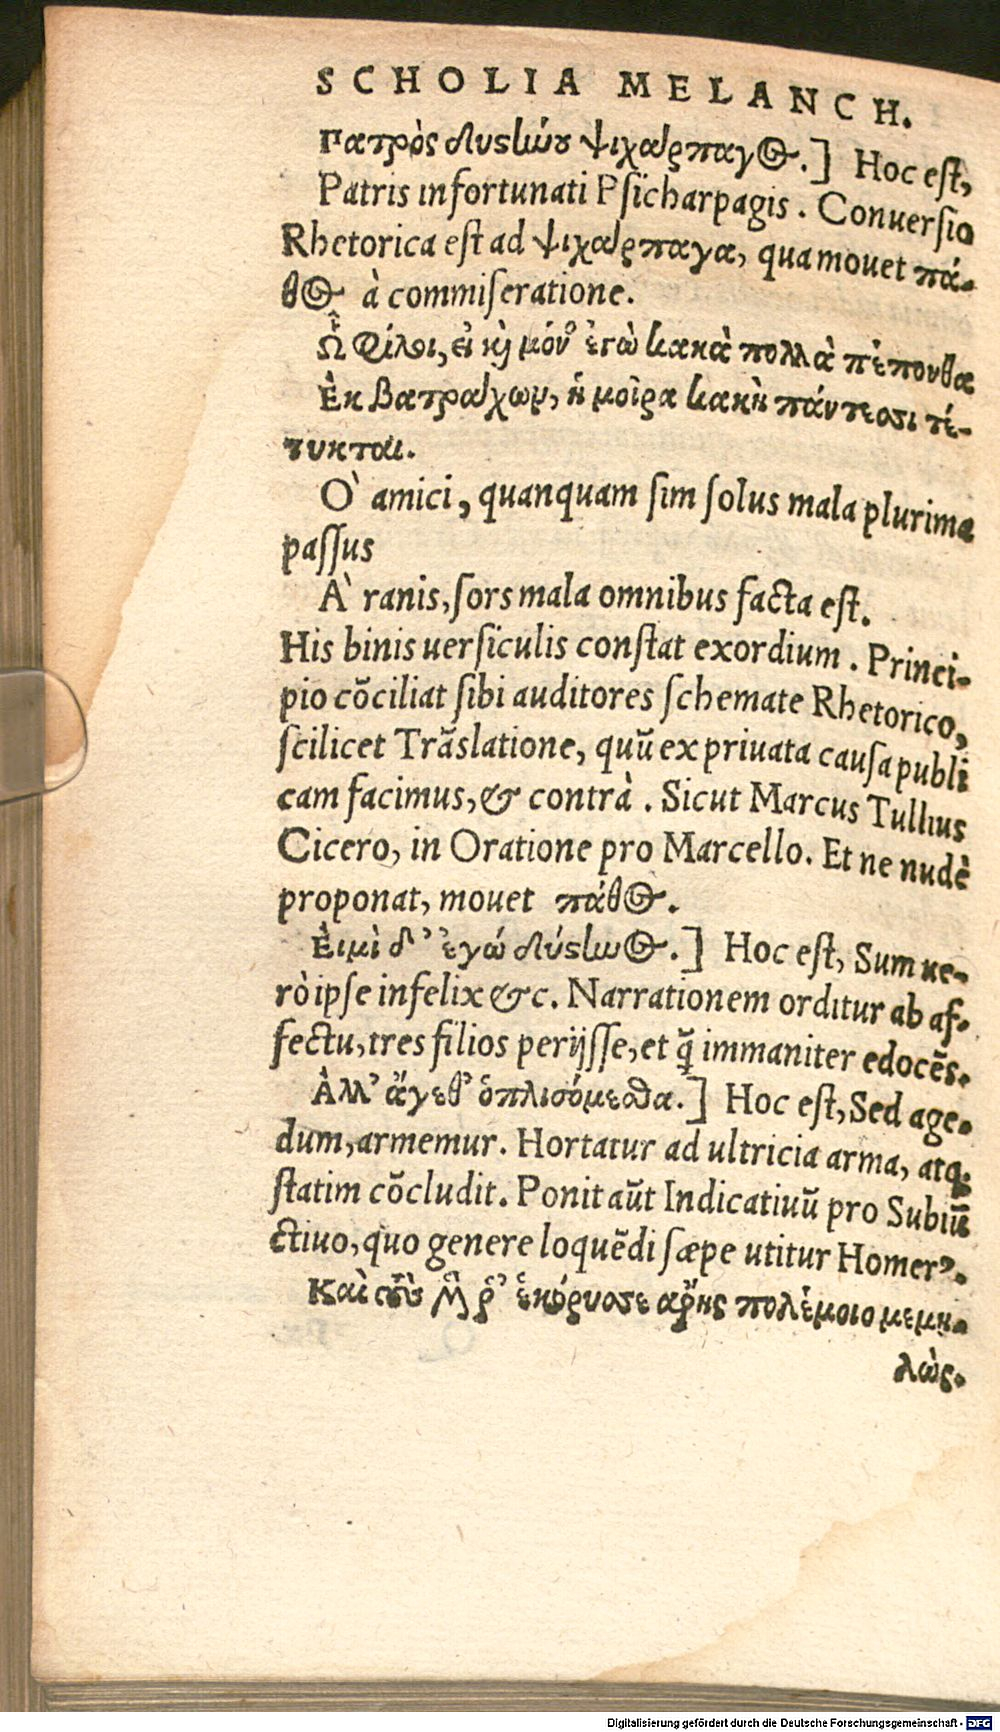 SCHOLIA MELANCH.
Πατρὸς δυστήνου ψιχάρπαγος.] Hoc est,
Patris infortunati Psicharpagis. Conuersio
Rhetorica est ad ψιχάρπαγα, qua mouet πά-
θος à commiseratione.
Ὦ φίλοι, εἰ καὶ μοῦνος ἐγὼ κακὰ πολλὰ πέπονθα
Ἐκ βατράχων, ἡ μοῖρα κακὴ πάντεσσι τέ-
τυκται.
O' amici, quanquam sim solus mala plurima
passus
A' ranis, sors mala omnibus facta est.
His binis uersiculis constat exordium. Princi-
pio cōciliat sibi auditores schemate Rhetorico,
scilicet Trāslatione, quū ex priuata causa publi
cam facimus, & contrà. Sicut Marcus Tullius
Cicero, in Oratione pro Marcello. Et ne nudè
proponat, mouet πάθος.
Ἐιμὶ δ' ἐγώ δύστηνος.] Hoc est, Sum ue-
rò ipse infelix &c. Narrationem orditur ab af-
fectu, tres filios perijsse, et q̄ immaniter edocēs.
Ἀλλ' ἄγεθ' ὁπλισόμεσθα.] Hoc est, Sed age-
dum, armemur. Hortatur ad ultricia arma, atq;
statim cōcludit. Ponit aūt Indicatiuū pro Subiū
ctiuo, quo genere loquēdi sæpe utitur Homerꝰ.
Καὶ τοὺς μέν ῥ' ἐκόρυσσε ἄρης πολέμοιο μεμη-
λὼς.
Digitalisierung gefördert durch die Deutsche Forschungsgemeinschaft - DFG